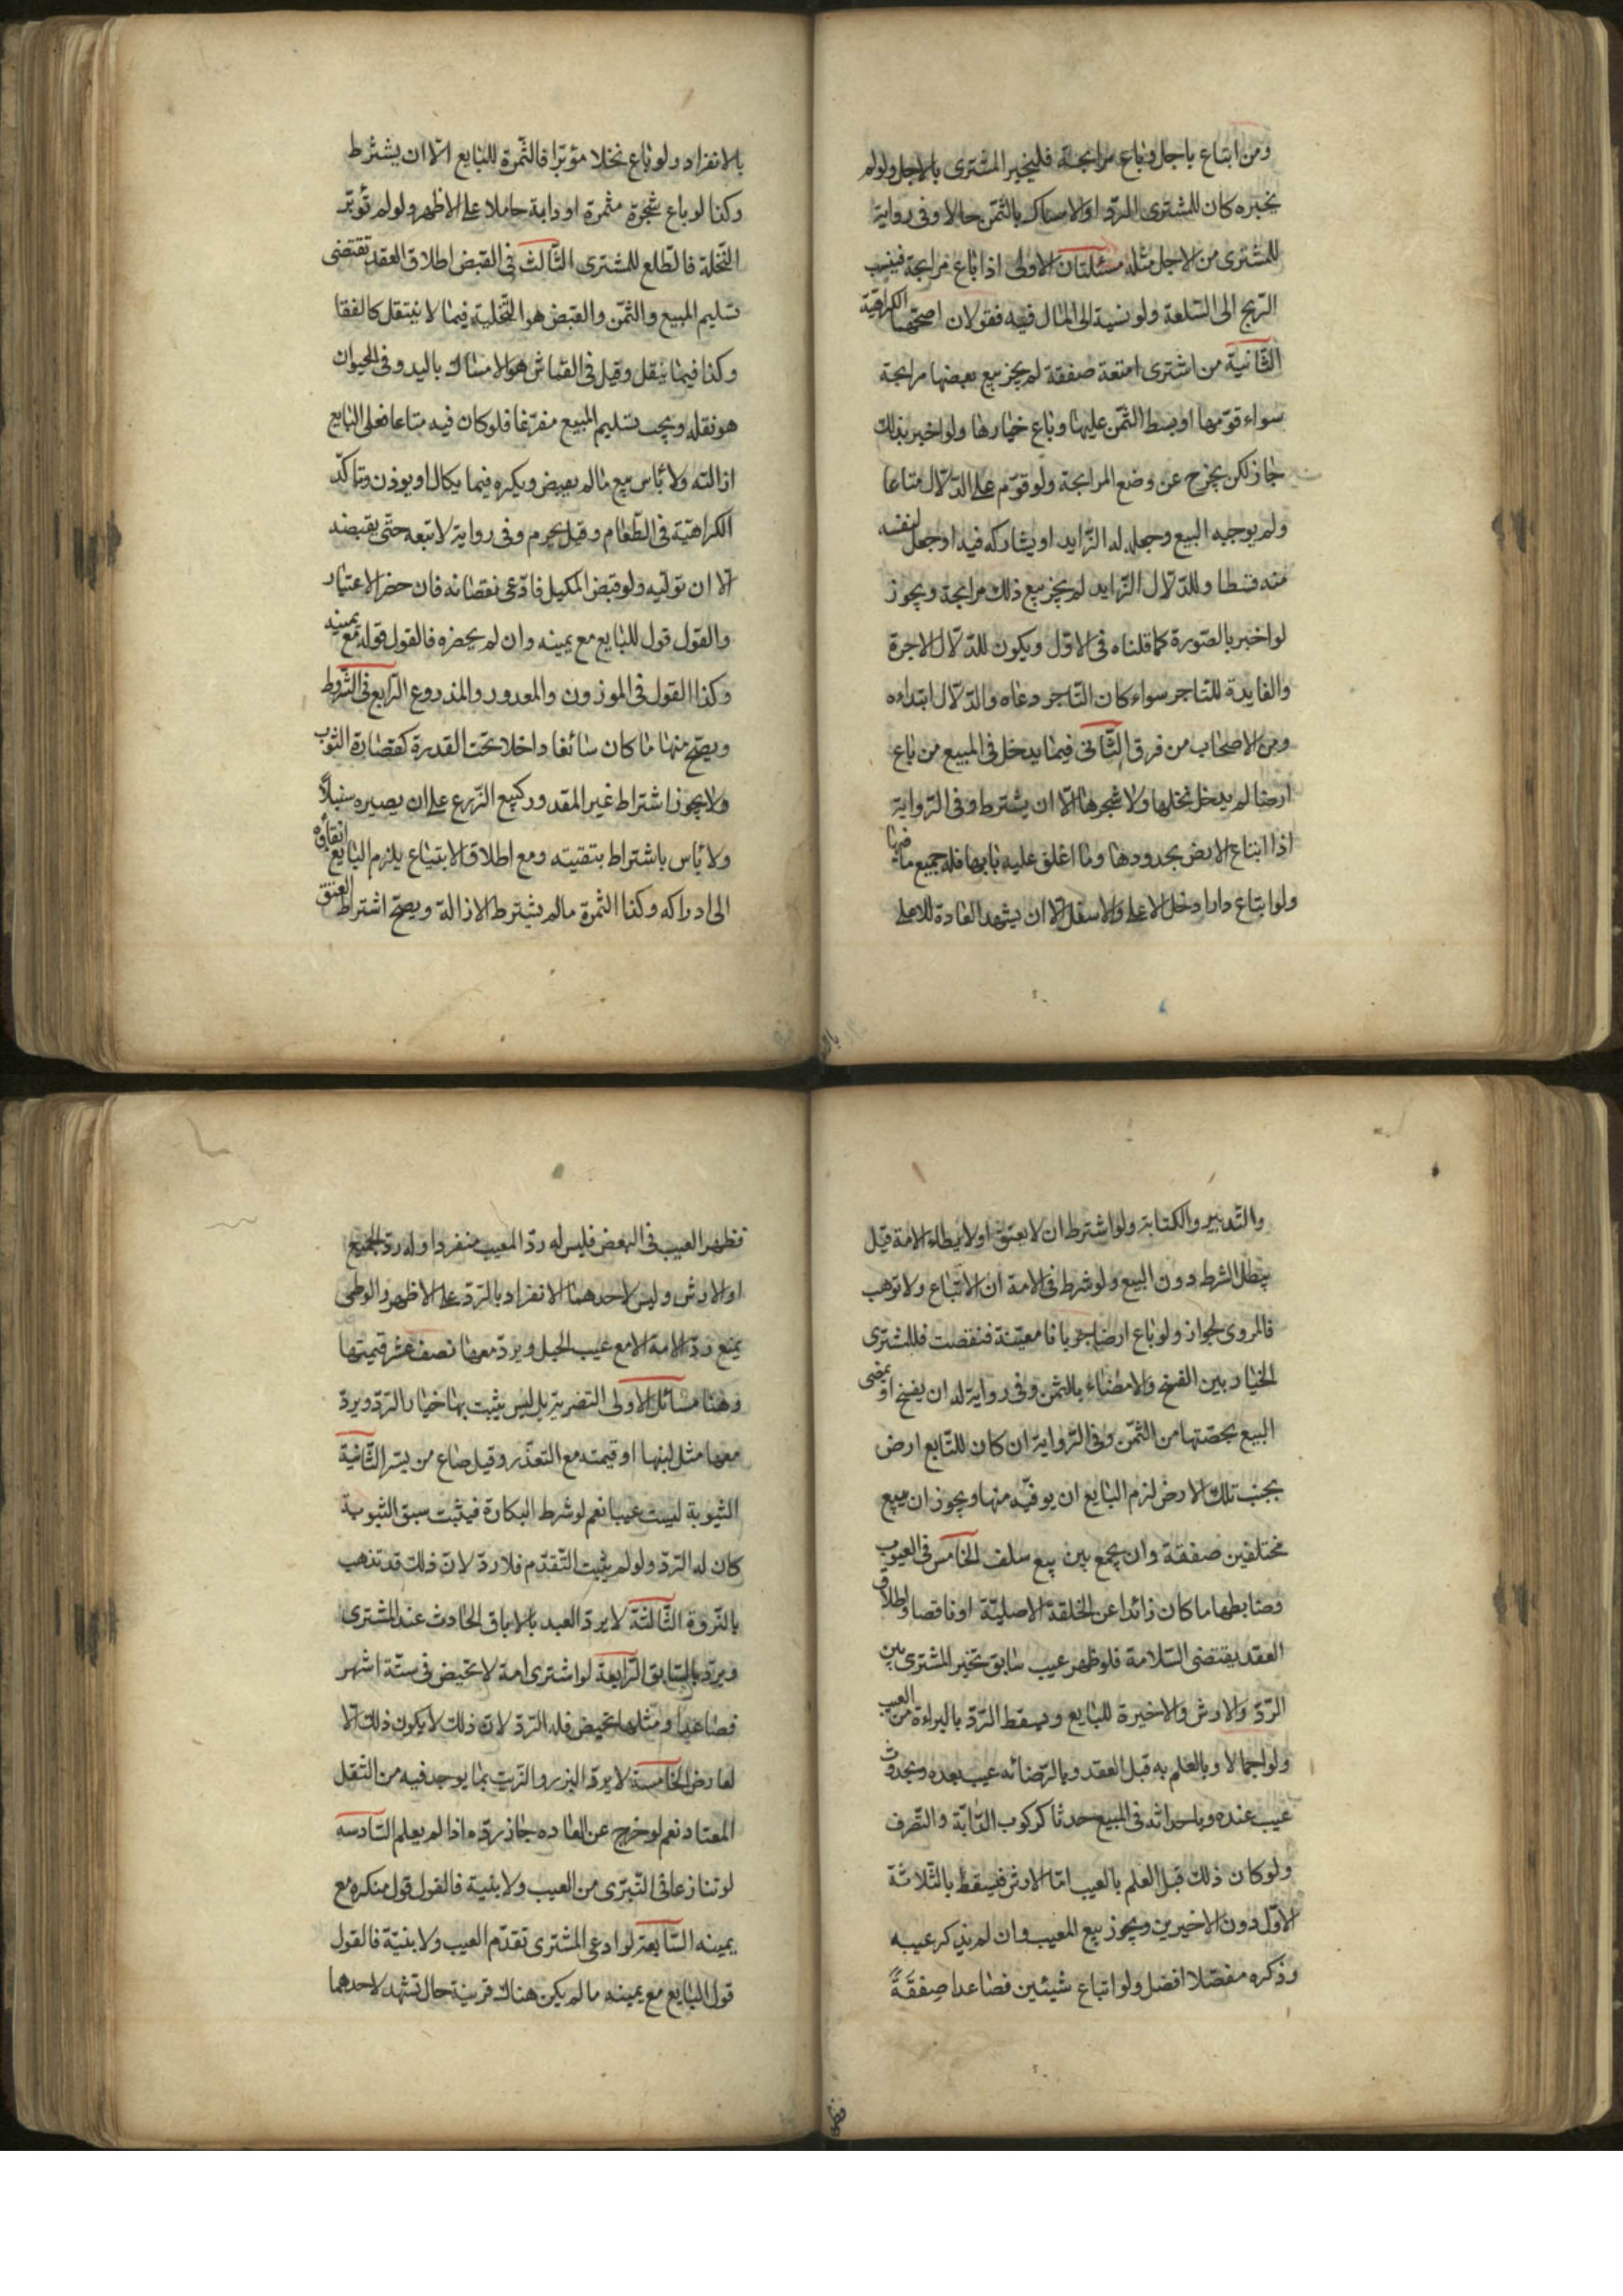 ومن ابتاع باجل وباع مرابحة فليخبر المشترى بالاجل ولو لم
يخبره كان للمشترى الرد او الامساك بالثمن حالا وفى رواية
للمشترى من الاجل مثله مسئلتان الاولى اذا باع مرابحة فينسب
الربح الى السلعة ولو نسبه الى المال فيه فقولان اصحهما الكراهية
الثانية من اشترى امتعة صفقة لم يجز بيع بعضها مرابحة
سواء قومها او بسط الثمن عليها وباع خيارها ولو اخبر بذلك
جاز لكن يخرج عن وضع المرابحة ولو قوم على الدلال متاعا
ولم يوجبه البيع وجعل له الزايد او يشاركه فيه او جعل لنفسه
منه قسطا وللدلال الزايد لم يجز بيع ذلك مرابحة ويجوز
لو اخبر بالصورة كما قلناه فى الاول ويكون للدلال الاجرة
والفايدة للتاجر سواء كان التاجر دعاه والدلال ابتداءه
ومن الاصحاب من فرق الثانى فيما يدخل فى المبيع من باع
ارضا لم يدخل نخلها ولا شجرها الا ان يشترط وفى الرواية
اذا ابتاع الارض بحدودها وما اغلق عليه بابها فله جميع ما فيها
ولو ابتاع دارا دخل الاعلى والاسفل الا ان يشهد العادة للاعلى
بالانفراد ولو باع نخلا مؤبرا فالثمرة للبايع الا ان يشترط
وكذا لو باع شجرة مثمرة او دابة حاملا على الاظهر ولو لم تؤبر
النخلة فالطلع للمشترى الثالث فى القبض اطلاق العقد تقتضى
تسليم المبيع والثمن والقبض هو التخلية فيما لا ينتقل كالفقا
وكذا فيما ينقل وقيل فى القماش هو الامساك باليد وفى الحيوان
هو نقله ويجب تسليم المبيع مفرغا فلو كان فيه متاعا فعلى البايع
ازالته ولا باس ببيع مالم يقبض ويكره فيما يكال او يوزن وتتاكد
الكراهية فى الطعام وقيل يحرم وفى رواية لا تبعه حتى يقبضه
الا ان توليه ولو قبض المكيل فادعى نقصانه فان حضر الاعتبار
والقول قول للبايع مع يمينه وان لم يحضره فالقول قوله مع يمينه
وكذا القول فى الموزون والمعدود والمذروع الرابع فى الشروط
ويصح منها ما كان سائغا داخلا تحت القدرة كقصارة الثوب
ولا يجوز اشتراط غير المقدور كبيع الزرع على ان يصيره سنبلا
ولا باس باشتراط بتقيته ومع اطلاق الابتياع يلزم البايع ابقاؤه
الى ادراكه وكذا الثمرة مالم يشترط الازالة ويصح اشتراط العتق
والتدبير والكتابة ولو اشترط ان لا يعتق او لا يطاء الامة قيل
يبطل الشرط دون البيع ولو شرط فى الامة ان لا تباع ولا توهب
فالمروى الجواز ولو باع ارضا جربانا معينة فنقصت فللمشترى
الخيار بين الفسخ والامضاء بالثمن وفى رواية له ان يفسخ او يمضى
البيع بحصتها من الثمن وفى الرواية ان كان للبايع ارض
بجنب تلك الارض لزم البايع ان يوفيه منها ويجوز ان يبيع
مختلفين صفقة وان يجمع بين بيع سلف الخامس فى العيوب
وضابطها ما كان زائدا عن الخلقة الاصلية او ناقصا واطلاق
العقد يقتضى السلامة فلو ظهر عيب سابق تخير المشترى بين
الرد والارش والاخيرة للبايع ويسقط الرد بالبراءة من العيب
ولو اجمالا وبالعلم به قبل العقد وبالرضا به عيب بعده وبحدوث
عيب عنده وباحداثه فى المبيع حدثا كركوب الدابة والتصرف
ولو كان ذلك قبل العلم بالعيب اما الارش فيسقط بالثلاثة
الاول دون الاخيرين ويجوز بيع المعيب وان لم يذكر عيبه
وذكره مفصلا افضل ولو ابتاع شيئين فصاعدا صفقة
فظهر العيب فى البعض فليس له رد المعيب منفردا وله رد الجميع
او الارش وليس لاحدهما الانفراد بالرد على الاظهر والوطى
يمنع رد الامة الا مع عيب الحبل ويرد معها نصف عشر قيمتها
وهنا مسائل الاولى التصرية بل ليس يثبت بها خيار الرد ويرد
معها مثل لبنها او قيمته مع التعذر وقيل صاع من بر الثانية
الثيوبة ليست عيبا نعم لو شرط البكارة فيثبت سبق الثيوبة
كان له الرد ولو لم يثبت التقدم فلا رد لان ذلك قد تذهب
بالنزوة الثالثة لا يرد العبد بالاباق الحادث عند المشترى
ويرد بالسابق الرابعة لو اشترى امة لا تحيض فى ستة اشهر
فصاعدا ومثلها تحيض فله الرد لان ذلك لا يكون ذلك الا
لعارض الخامسة لا يرد البزر والزيت بما يوجد فيه من الثقل
المعتاد نعم لو خرج عن العاده جاز رده اذا لم يعلم السادسه
لو تنازعا فى التبرى من العيب ولا بينة فالقول قول منكره مع
يمينه السابعة لو ادعى المشترى تقدم العيب ولا بينة فالقول
قول البايع مع يمينه مالم يكن هناك قرينة حال تشهد لاحدهما